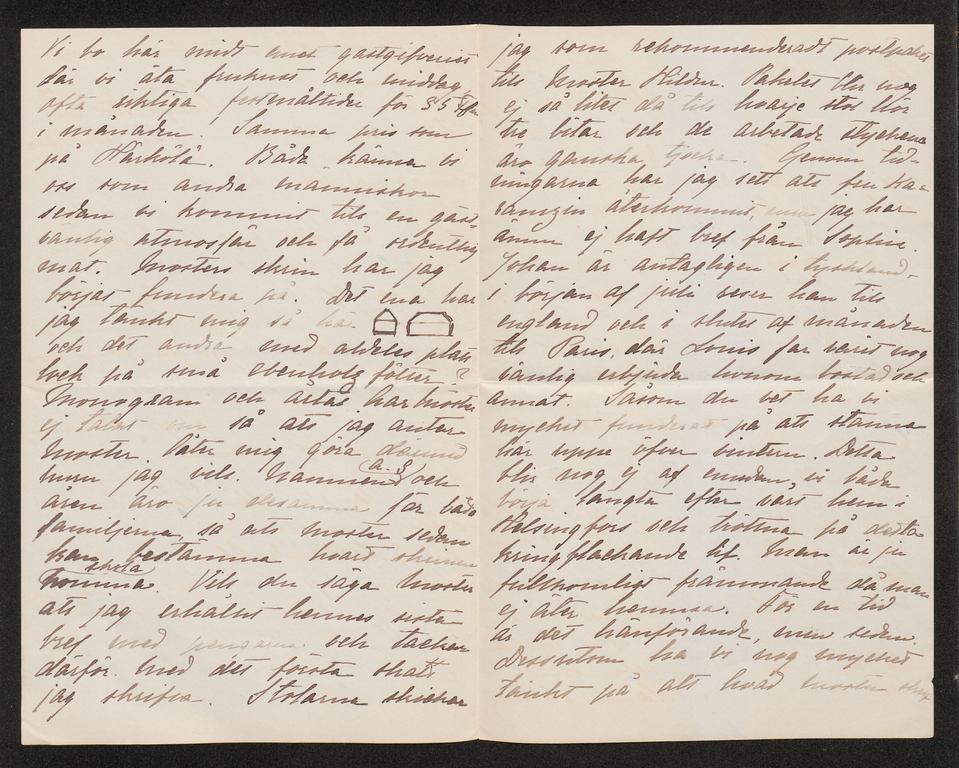 Vi bo här midt emot gästgifveriet
där vi äta frukost och middag
ofta riktiga festmåltider för 85 Fmk
i månaden. Samma pris som
på Härkölä. Både känna vi
oss som andra människor
sedan vi kommit till en gäst-
vänlig atmosfär och få ordentlig
mat. Mosters skrin har jag
börjat fundera på. Det ena har
jag tänkt mig så här
och det andra med aldeles platt
lock på små ebenholz fötter?
Monogram och årtal har moster
ej talat om så att jag antar
moster låter mig göra därmed
huru jag vill. Namnen (A. S) och
åren äro ju desamma för båda
familjerna, så att moster sedan
kan bestämma hvart skrinen
skola komma. Vill du säga Moster
att jag erhållit hennes sista
bref med pengarna och tackar
därför. Med det första skall
jag skrifva. Stolarna skickar
jag som rekommenderadt postpaket
till Moster Hilder. Paketet blir nog
ej så litet då till hvarje stol hör
tre bitar och de arbetade styckena
äro ganska tjocka. Genom tid-
ningarna har jag sett att fru Ka-
ramzin återkommit, men jag har
ännu ej haft bref från Sophie.
Johan är antagligen i tyskland.
i början af juli reser han till
england och i slutet af månaden
till Paris, där Louis har varit nog
vänlig erbjuda honom bostad och
annat. Såsom du vet ha vi
mycket funderat på att stanna
här uppe öfver vintern. Detta
blir nog ej af emedan vi både
börja längta efter vårt hem i
Helsingfors och tröttna på detta
kringflackande lif. Man är ju
fullkomligt främmande då man
ej äter hemma. För en tid
är det hänförande, men sedan.
Dessutom ha vi nog mycket
tänkt på allt hvad moster